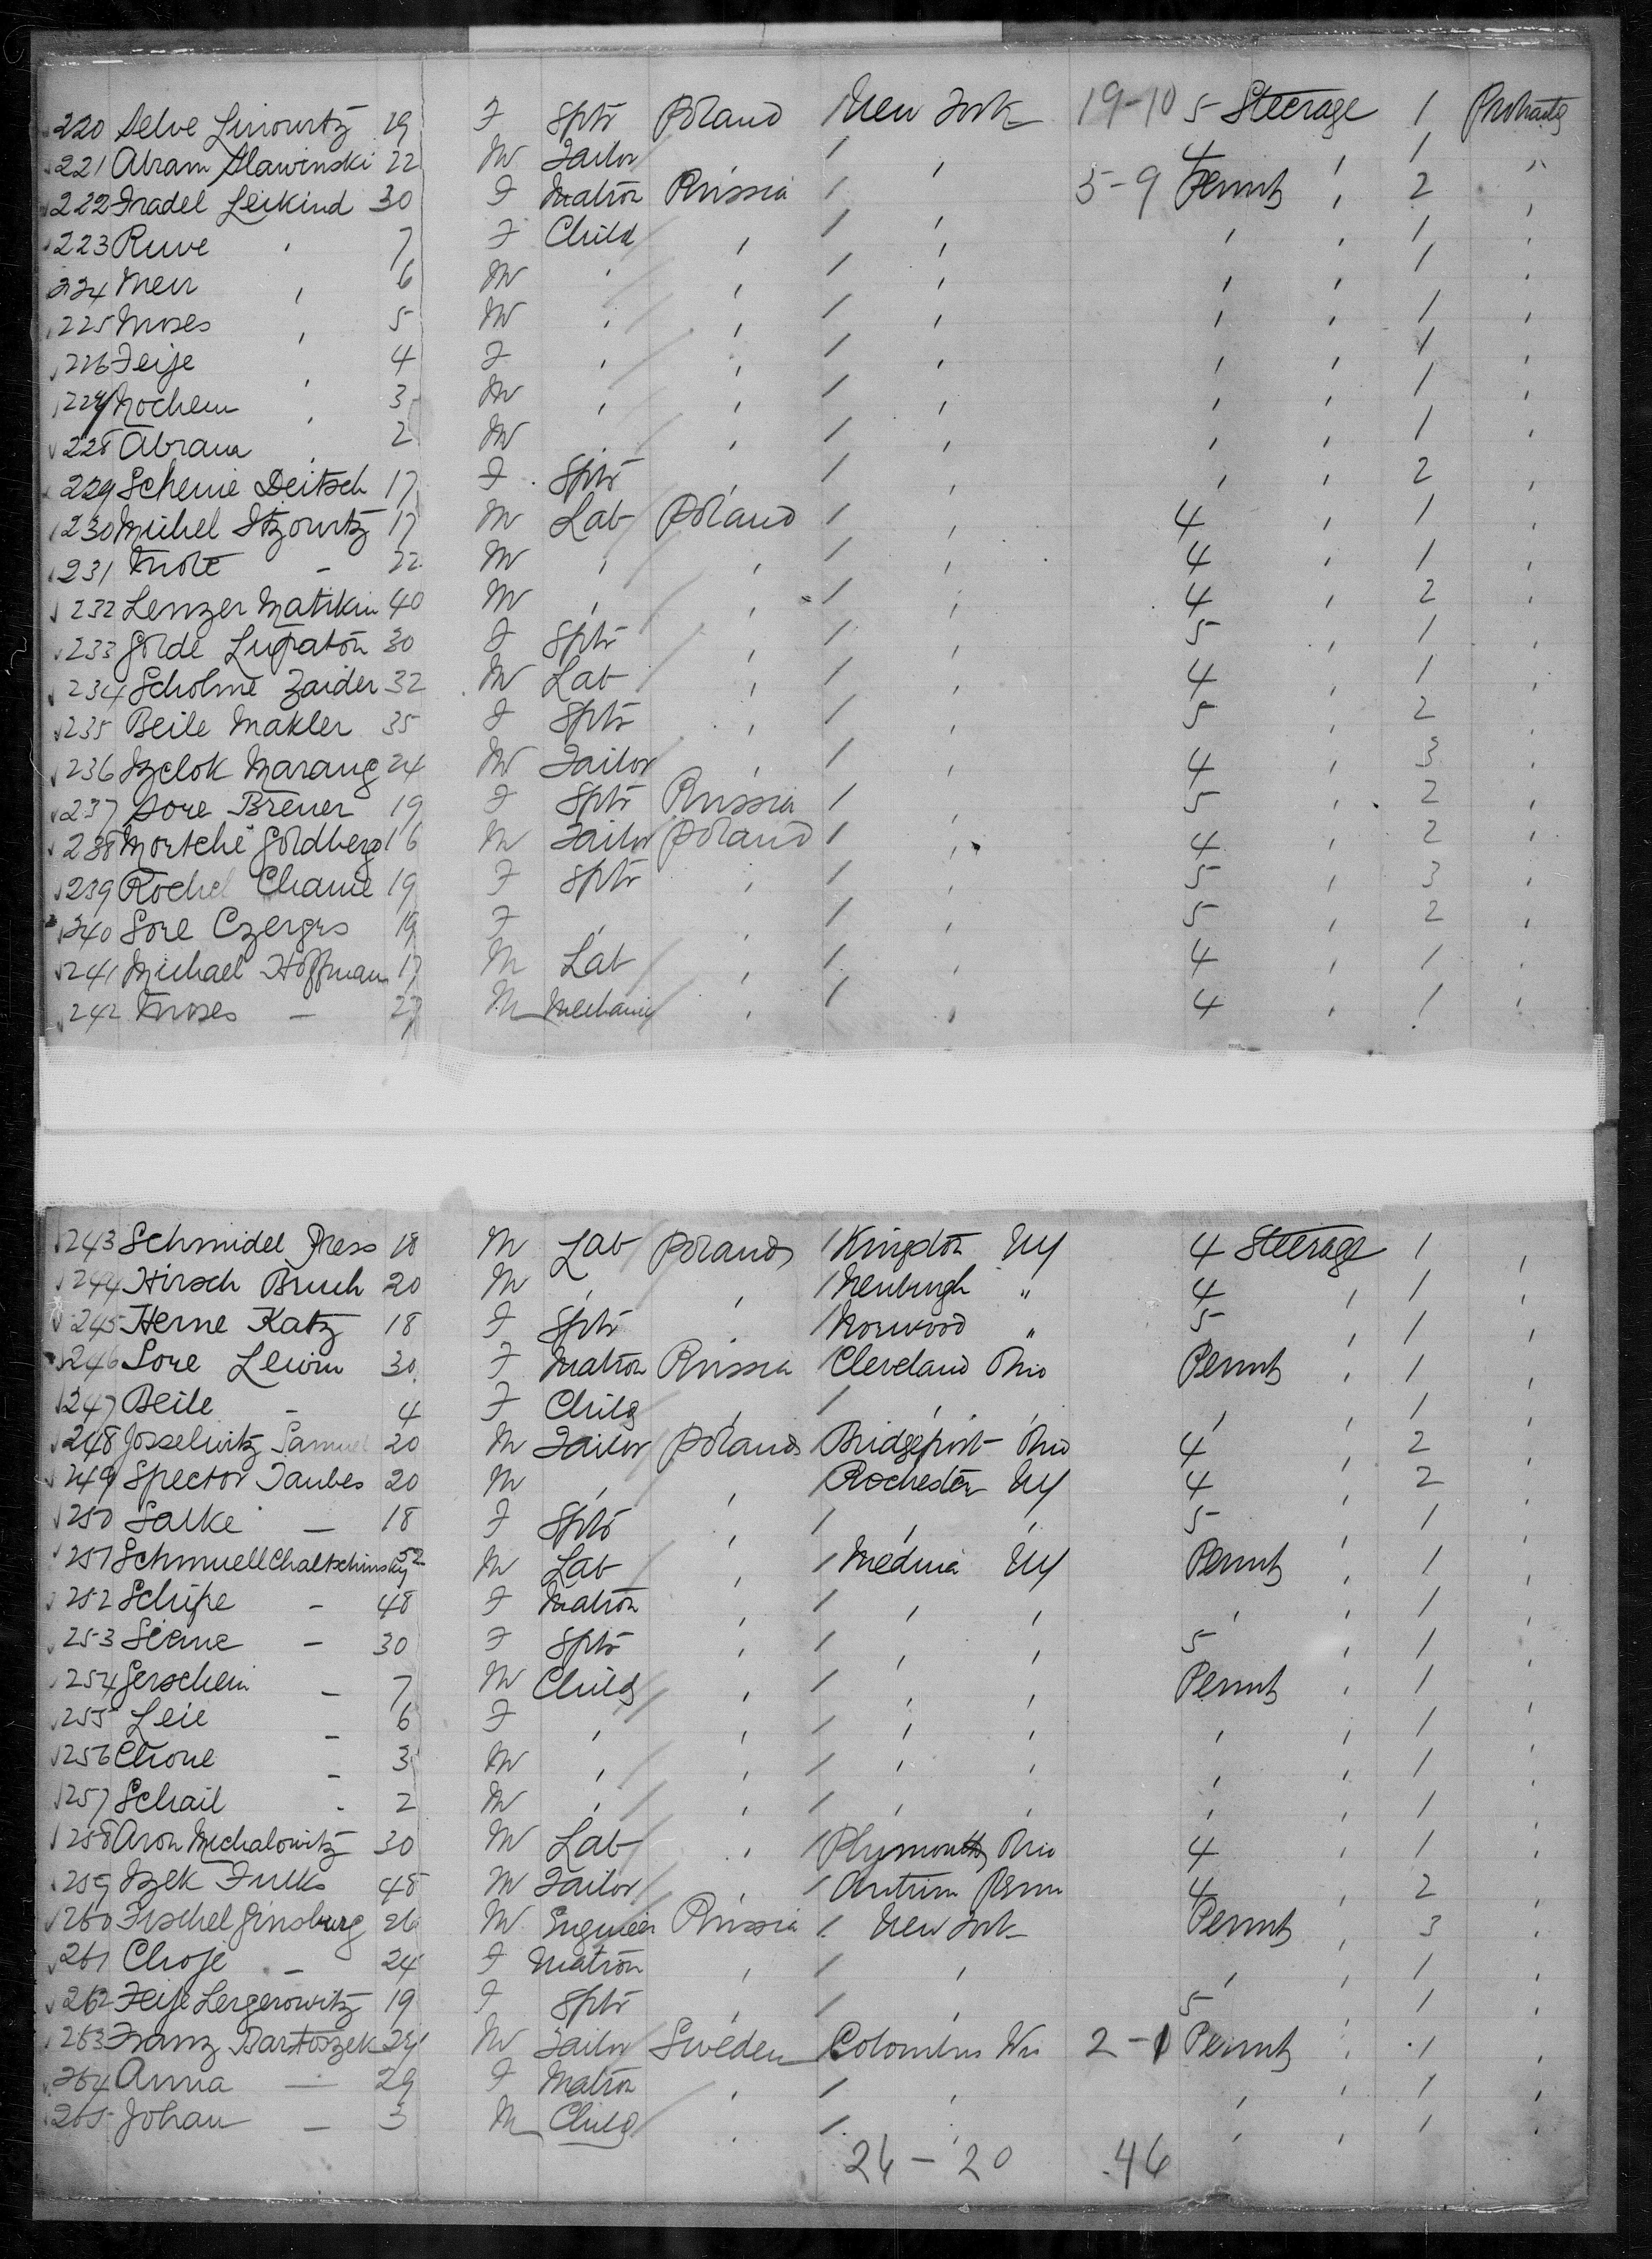 220 Selve Linowitz 19 F Sptr Poland New York 19-10 5 Steerage 1
221 Abram Slawinski 22 M Tailor , / , 4 , 1 "
222 Fradel Leikind 30 F Matron Russia / , 5-9 Permit , 2 ,
223 Ruve , 7 F Child , / , , , 1 ,
224 Meir , 6 M , , / , , , 1 ,
225 Moses , 5 M , , / , , , 1 ,
226 Feije , 4 F , , / , , , 1 ,
227 Nochem , 3 M , , / , , , 1 ,
228 Abram , 2 M , , / , , , 1 ,
229 Scheine Deitsch 17 F Sptr , / , , , 2 ,
230 Michel Itzowitz 17 M Lab Poland / , 4 , 1 ,
231 Mote - 22 M , , / , 4 , 1 ,
232 Lenzer Matikin 40 M , , / , 4 , 2 ,
233 Golde Lupaton 30 F Sptr , / , 5 , 1 ,
234 Scholme Zaider 32 M Lab , / , 4 , 1 ,
235 Beile Makler 35 F Sptr , / , 5 , 2 ,
236 Marang 24 M Tailor , / , 4 , 3 ,
237 Sore Brener 19 F Sptr Russia / , 5 , 2 ,
238 Mortche Goldberg 16 M Tailor Poland / , 4 , 2 ,
239 Rochel Chame 19 F Sptr , / , 5 , 3 ,
240 Sore 19 F , , / , 5 , 2 ,
241 Michael Hoffman 17 M Lab , / , 4 , 1 ,
242 Moses - 27 M Mechanic , / , 4 , 1 ,
243 Schmidel Press 18 M Lab Poland / Kingston NY 4 Steerage 1 ,
244 Hirsch Bruch 20 M , , / Newburgh " 4 , 1 ,
245 Herne Katz 18 F Sptr , / Norwood " 5 , 1 ,
246 Sore Lewin 30 F Matron Russia / Cleveland Ohio Permit , 1 ,
247 Beile - 4 F Child , / , , , , 1 ,
248 Josselwitz Samuel 20 M Tailor Poland / Bridgeport Ohio 4 , 2 ,
249 Spector Taubes 20 M , , Rochester NY 4 , 2 ,
250 Salke - 18 F Sptr , / , , 5 , 1 ,
251 Schmuell Chaltschinsky 52 M Lab , / Medina NY Permit , 1 ,
252 Schipe - 48 F Matron , / , , , , 1 ,
253 Sieme - 30 F Sptr , / , , 5 , 1 ,
254 Gerschein - 7 M Child , / , , Permit , 1 ,
255 Leie - 6 F , , / , , , , 1 ,
256 Chone - 3 M , , / , , , , 1 ,
257 Schail - 2 M , , / , , , , 1 ,
258 Aron Michalowitz 30 M Lab , / Plymouth Ohio 4 , 1 ,
259 Itzek Fulks 48 M Tailor , / Antrim Penn 4 , 2 ,
260 Fischel Ginsburg 26 M Engineer Russia / New York Permit , 3 ,
261 Choje - 24 F Matron , / , , , 1 ,
262 Feije Lergerowitz 19 F Sptr , / , 5 , 1 ,
263 Franz Bartoszek 24 M Tailor Sweden Colombus Wis 2-1 Permit , 1 ,
264 Anna - 29 F Matron , / , , , 1 ,
265 Johan - 3 M Child , / , , , 1 ,
26 - 20 46